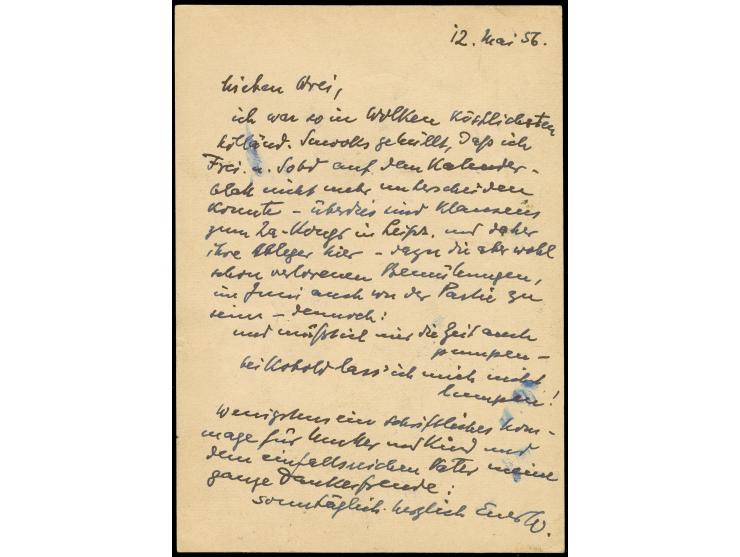 12. Mai 56.
Lieben Drei,
ich war so in Wolken köstlichsten
holländ. Smooks gehüllt, daß ich
Frei. u. Sobd auf dem Kalender-
blatt nicht mehr unterscheiden
konnte – überdies sind Klausens
zum Za-Kongr in Leipz. und daher
ihre Ableger hier – dazu die aber wohl
schon verlorenen Bemühungen,
im Juni auch von der Partie zu
sein – dennoch:
und müßt ich mir die Zeit auch
pumpen –
bei Kobold lass' ich mich nicht
lumpen!
Wenigstens ein schriftliches Hom-
mage für Mutter und Kind und
dem einfallsreichen Vater meine
ganze Dankesfreude:
sonntäglich-herzlich Euer W.